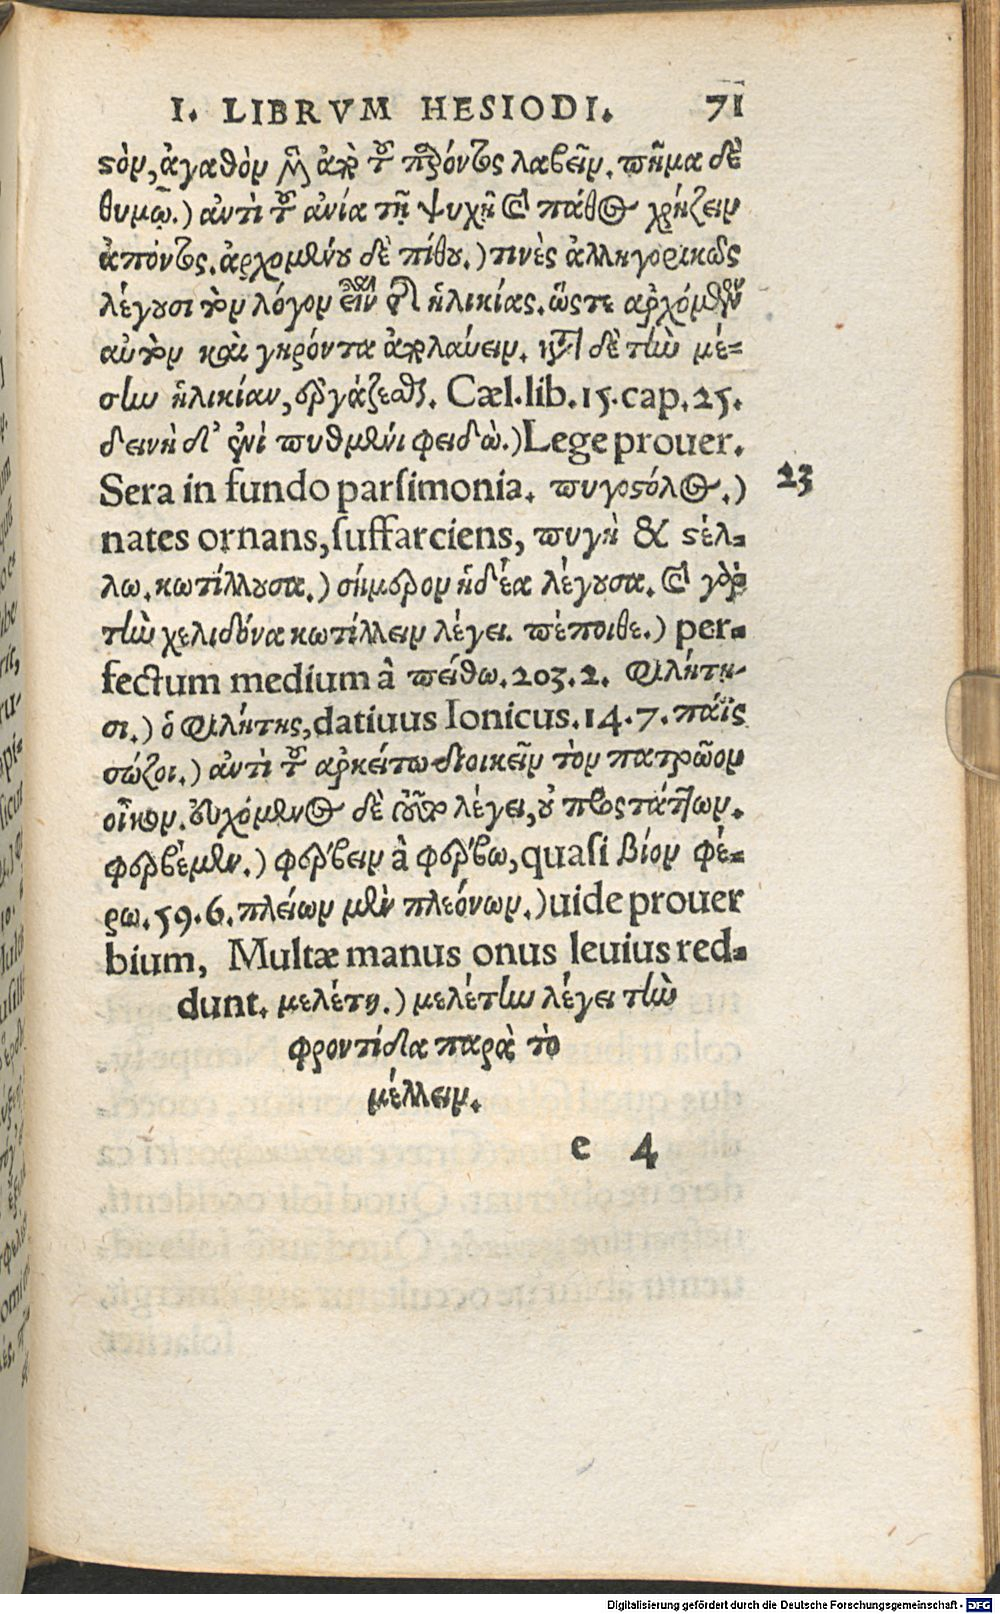 I. LIBRVM HESIODI. 71
ϛὸν, ἀγαθὸν μὲν ἀπὸ τοῦ παρόντος λαβεῖν. πῆμα δὲ
θυμῷ.) ἀντὶ τοῦ ἀνία τῇ ψυχῇ καὶ πάθος χρήζειν
ἀπόντος. ἀρχομένου δὲ πίθου.) τινὲς ἀλληγορικῶς
λέγουσι τὸν λόγον εἶναι περὶ ἡλικίας. ὥστε ἀρχόμενον
αὐτὸν καὶ γηρόντα ἀπολαύειν. κατὰ δὲ τὴν μέ-
σην ἡλικίαν, ἐργάζεσθαι. Cæl.lib.15.cap.25.
δεινὴ δ' ἐνὶ πυθμένι φειδώ.) Lege prouer.
Sera in fundo parsimonia. πυγοϛόλος.) 23
nates ornans, suffarciens, πυγὴ & ϛέλ-
λω. κωτίλλουσα.) σήμερον ἡδέα λέγουσα. καὶ γὰρ
τὴν χελιδόνα κωτίλλειν λέγει. πέποιθε.) per-
fectum medium â πείθω. 203.2. φιλήτη-
σι.) ὁ φιλήτης, datiuus Ionicus. 14.7. πάϊς
σώζοι.) ἀντὶ τοῦ ἀρκείτω διοικεῖν τὸν πατρῷον
οἶκον. εὐχόμενος δὲ τοῦτο λέγει, οὐ προστάττων.
φερβέμεν.) φέρβειν â φέρβω, quasi βίον φέ-
ρω. 59.6. πλείων μὲν πλεόνων.) uide prouer
bium, Multæ manus onus leuius red-
dunt. μελέτη.) μελέτην λέγει τὴν
φροντίδα παρὰ τὸ
μέλλειν.
e 4
Digitalisierung gefördert durch die Deutsche Forschungsgemeinschaft - DFG